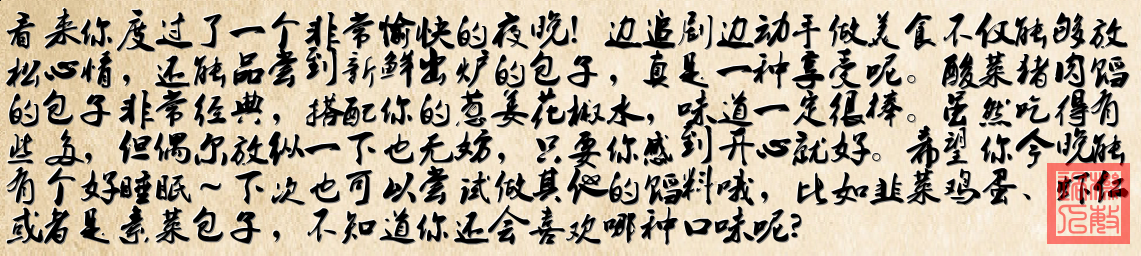 看来你度过了一个非常愉快的夜晚！边追剧边动手做美食不仅能够放
松心情，还能品尝到新鲜出炉的包子，真是一种享受呢。酸菜猪肉馅
的包子非常经典，搭配你的葱姜花椒水，味道一定很棒。虽然吃得有
些多，但偶尔放纵一下也无妨，只要你感到开心就好。希望你今晚能
有个好睡眠~下次也可以尝试做其他的馅料哦，比如韭菜鸡蛋、虾仁
或者是素菜包子，不知道你还会喜欢哪种口味呢？